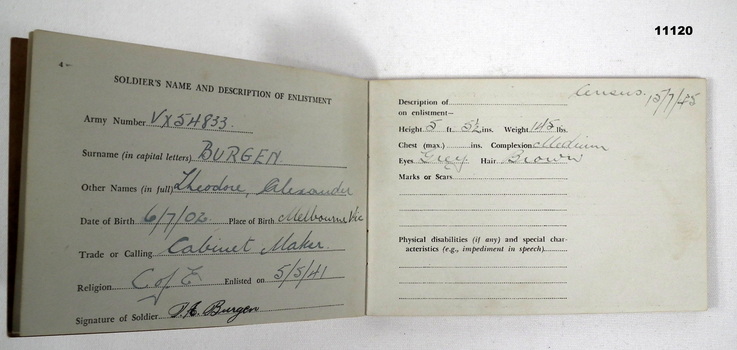 11120
4
SOLDIER'S NAME AND DESCRIPTION OF ENLISTMENT
Army Number VX54833.
Surname (in capital letters) BURGEN.
Other Names (in full) Theodore, Alexander
Date of Birth 6/7/02. Place of Birth Melbourne Vic
Trade or Calling Cabinet Maker.
Religion C of E Enlisted on 5/5/41
Signature of Soldier Burgen
Census. 15/7/45
Description of
on enlistment—
Height 5 ft. 5½ ins. Weight 145 lbs.
Chest (max.) ins. Complexion Medium
Eyes Grey Hair Brown
Marks or Scars
Physical disabilities (if any) and special char-
acteristics (e.g., impediment in speech)